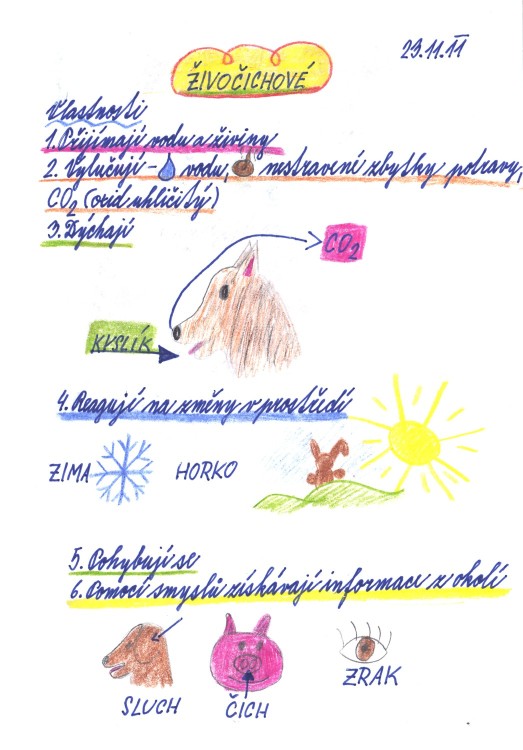 23.11.11
ŽIVOČICHOVÉ
Vlastnosti
1. Přijímají vodu a živiny
2. Vylučují - vodu, nestravené zbytky potravy,
CO2 (oxid uhličitý)
3. Dýchají
CO2
KYSLÍK
4. Reagují na změny v prostředí
ZIMA HORKO
5. Pohybují se
6. Pomocí smyslů získávají informace z okolí
SLUCH ČICH ZRAK